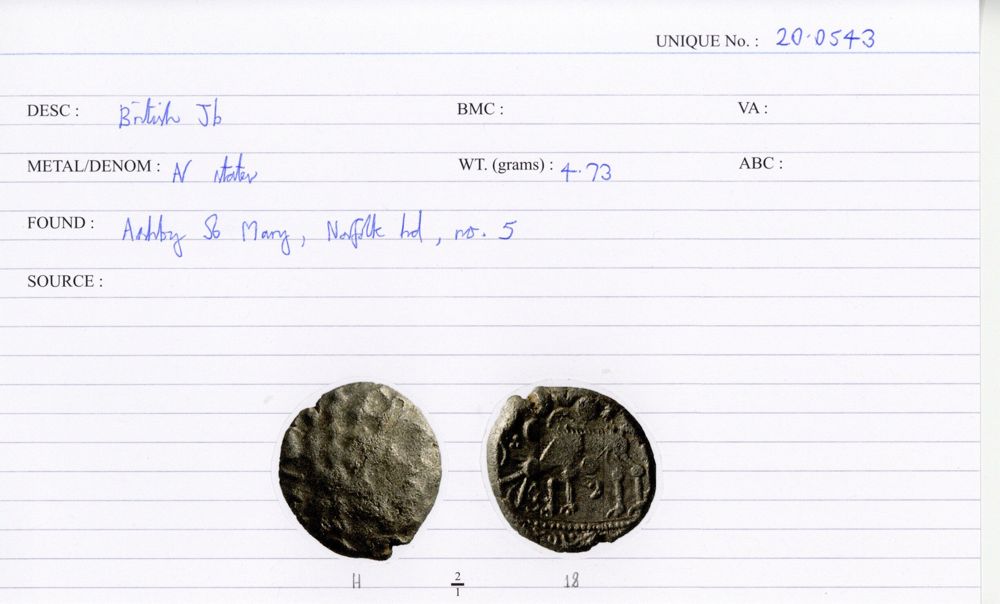 UNIQUE No. : 20·0543
DESC : British Jb BMC : VA :
METAL/DENOM : N stater WT. (grams) : 4·73 ABC :
FOUND : Ashby St Mary, Norfolk hd, no. 5
SOURCE :
H 2/1 18